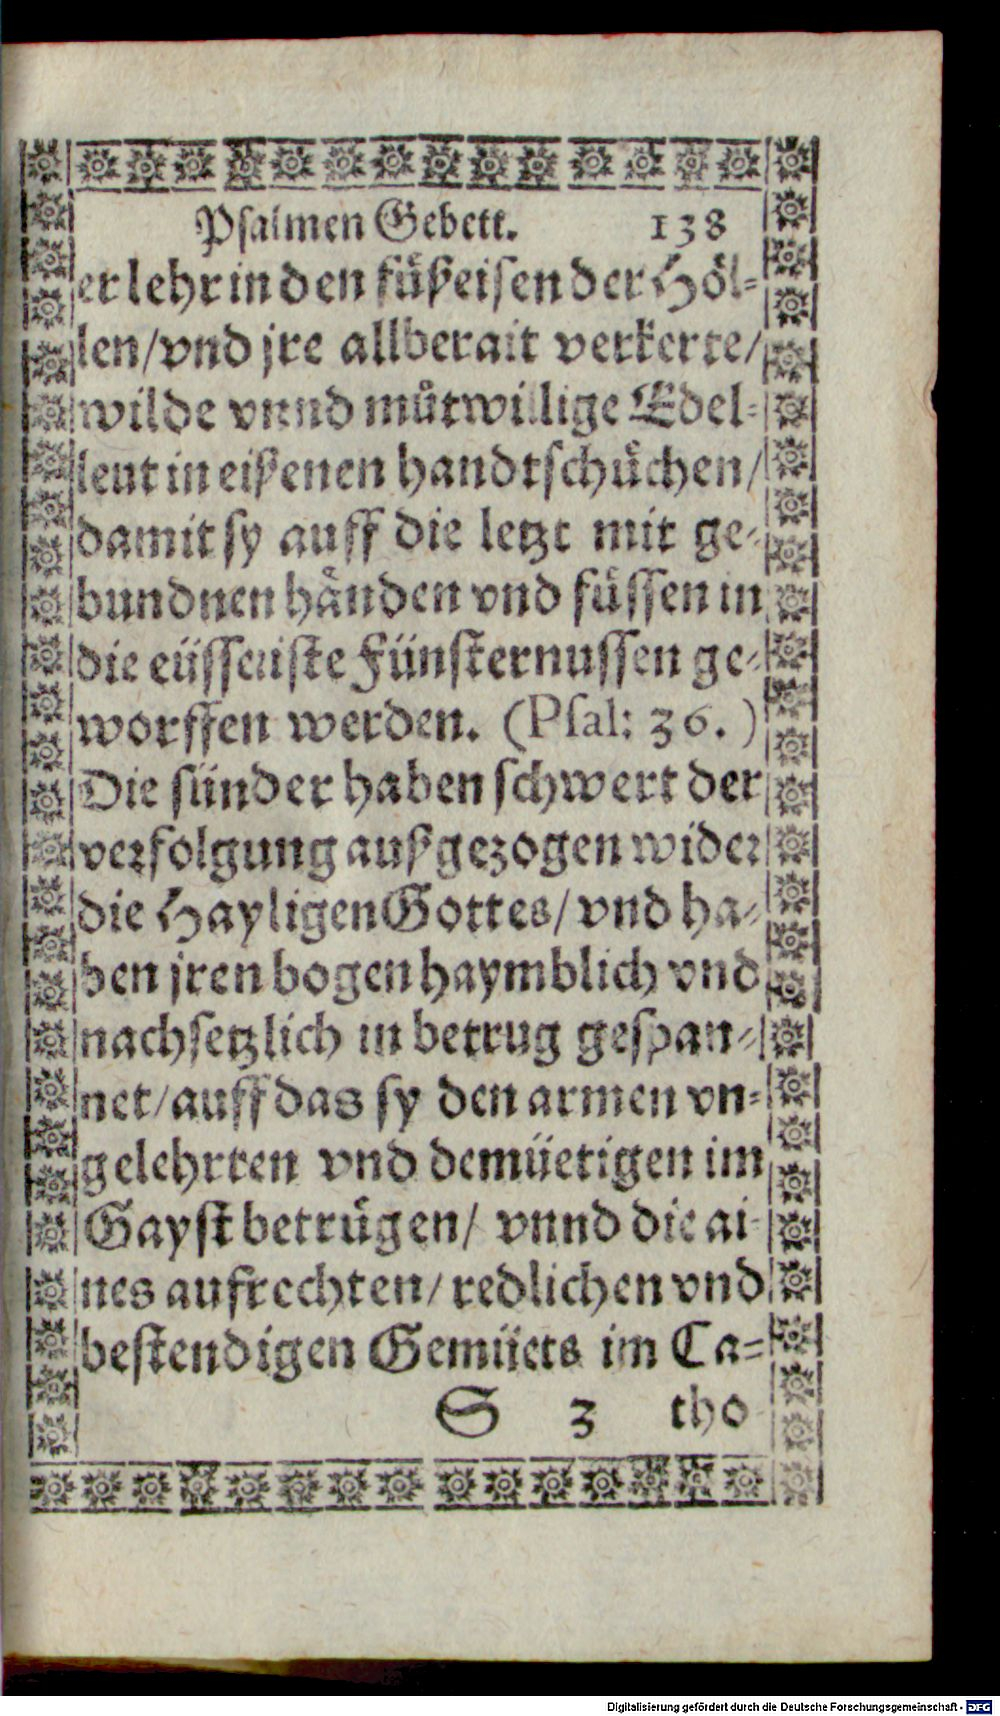 Psalmen Gebett. 138
er lehr in den fůßeisen der Höl-
len/vnd jre allberait verkerte/
wilde vnnd můtwillige Edel-
leut in eißenen handtschůchen/
damit sy auff die letzt mit ge-
bundnen händen vnd füssen in
die eüsseriste Fünsternussen ge-
worffen werden. (Psal: 36.)
Die sünder haben schwert der
verfolgung außgezogen wider
die Hayligen Gottes/vnd ha-
ben jren bogen haymblich vnd
nachsetzlich in betrug gespan-
net/auff das sy den armen vn-
gelehrten vnd demüetigen im
Gayst betrügen/ vnnd die ai-
nes aufrechten/redlichen vnd
bestendigen Gemüets im Ca-
S 3 tho
Digitalisierung gefördert durch die Deutsche Forschungsgemeinschaft - DFG